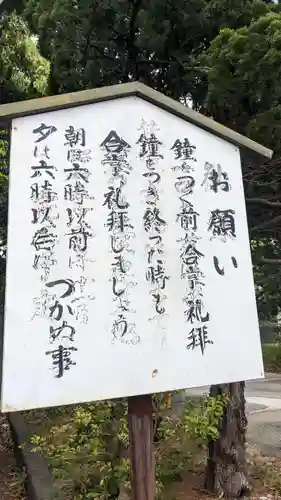 お願い
鐘をつく前 合掌礼拝
鐘をつき終った時も
合掌礼拝しましょう
朝は六時以前は
夕は六時以后は
つかぬ事